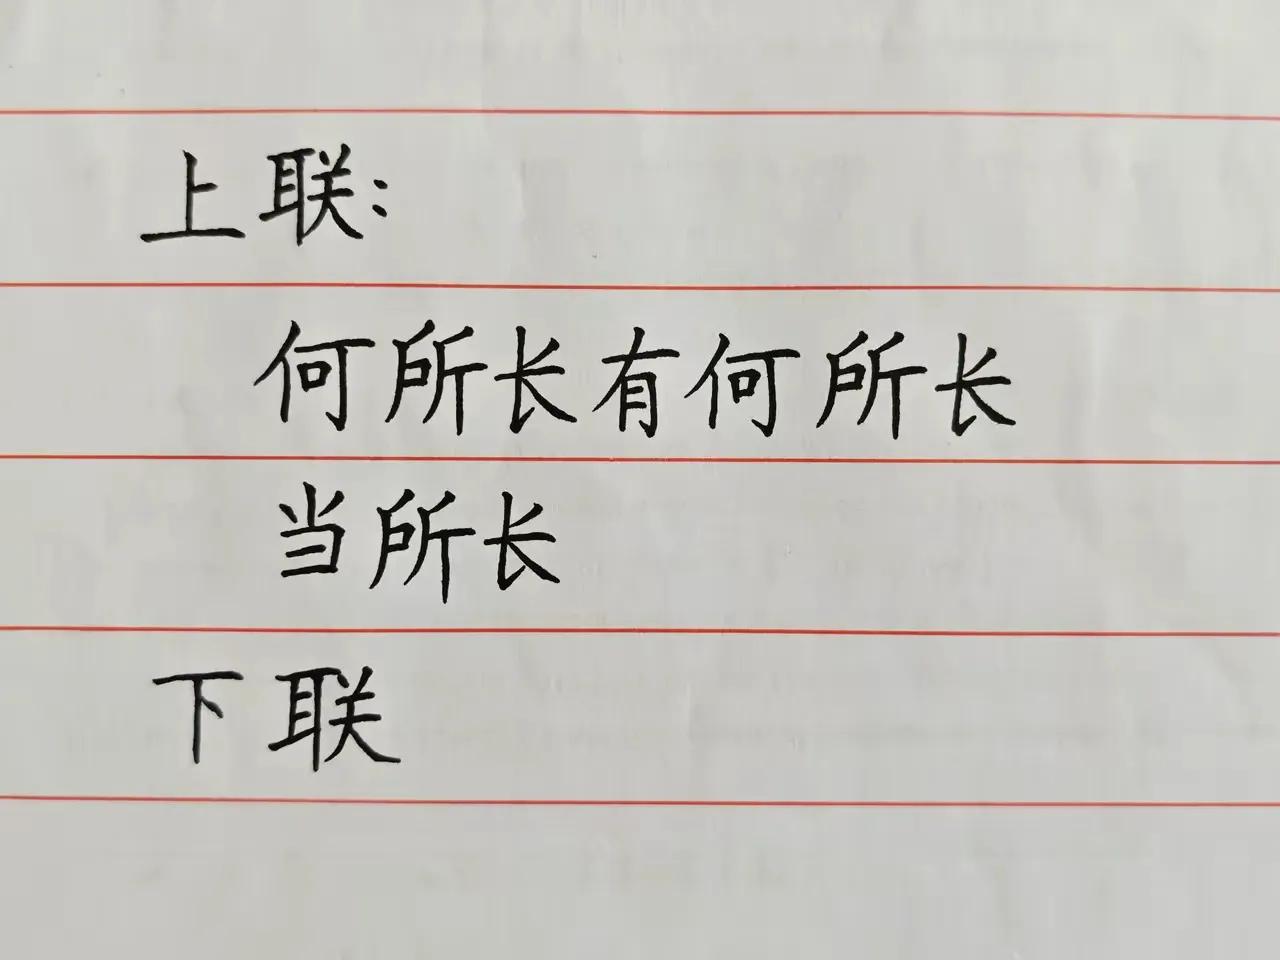 上联：
何所长有何所长
当所长
下联